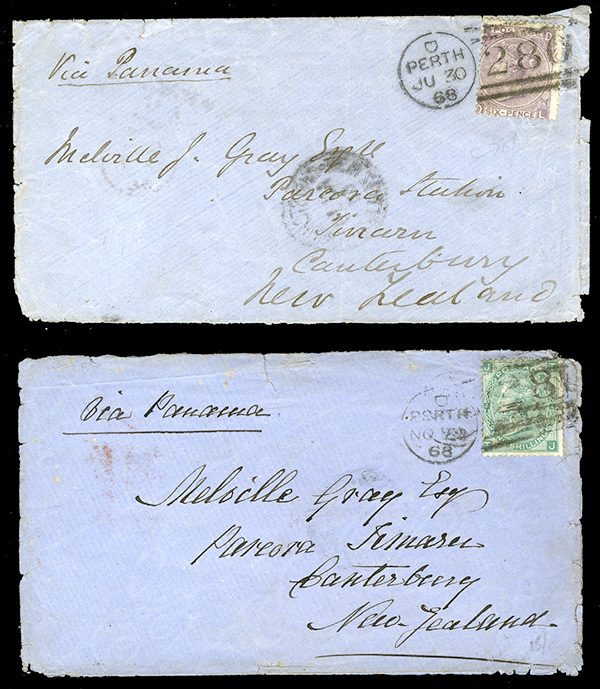 Via Panama
D
PERTH
JU 30
68
28
POST
D
SIX-PENCE
L
Melville J. Gray Esqre
Pareora Station
Timaru
Canterbury
New Zealand
Via Panama
D
PERTH
NO
68
8
SHILLING
J
Melville Gray Esq
Pareora Timaru
Canterbury
New-Zealand